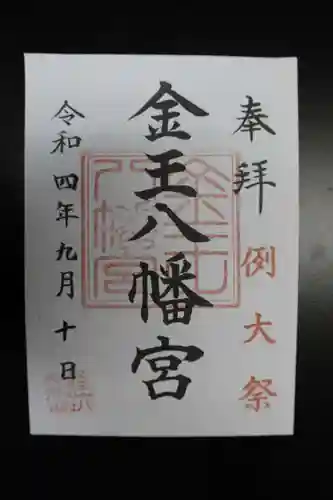 奉拝
例大祭
金王八幡宮
令和四年九月十日